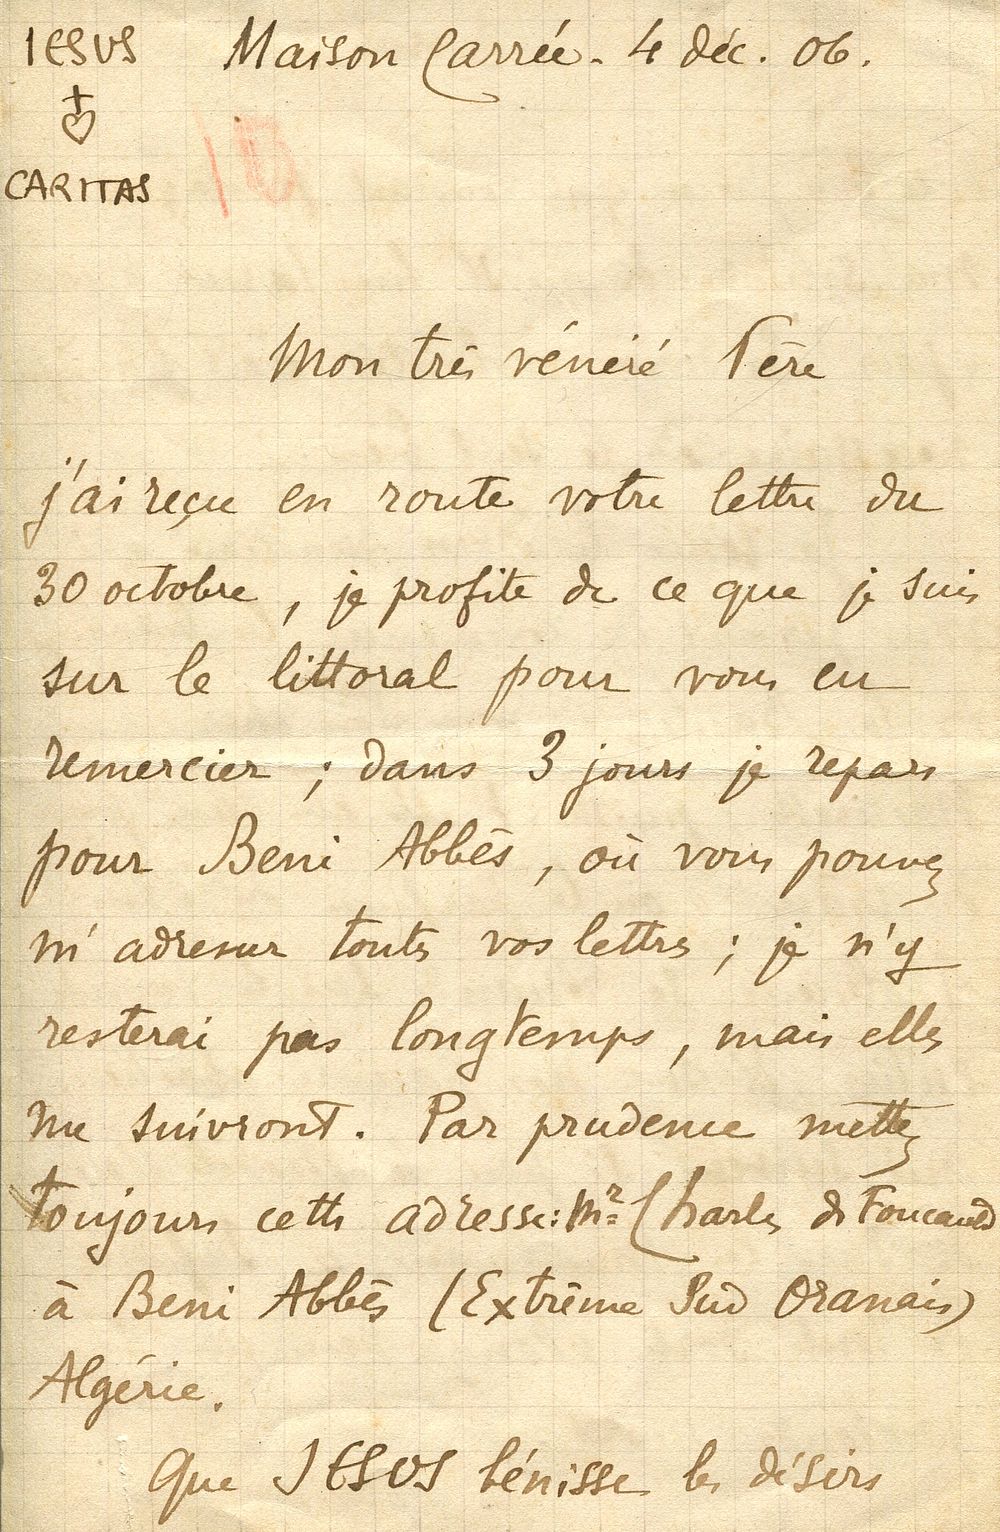 IESUS Maison Carrée. 4 déc. 06.
CARITAS
Mon très vénéré Père
j'ai reçu en route votre lettre du
30 octobre, je profite de ce que je suis
sur le littoral pour vous en
remercier ; dans 3 jours je repars
pour Beni Abbès, où vous pouvez
m'adresser toutes vos lettres ; je n'y
resterai pas longtemps, mais elles
me suivront. Par prudence mettez
toujours cette adresse : Mr Charles de Foucauld
à Beni Abbès (Extrême Sud Oranais)
Algérie.
Que JESUS bénisse les désirs